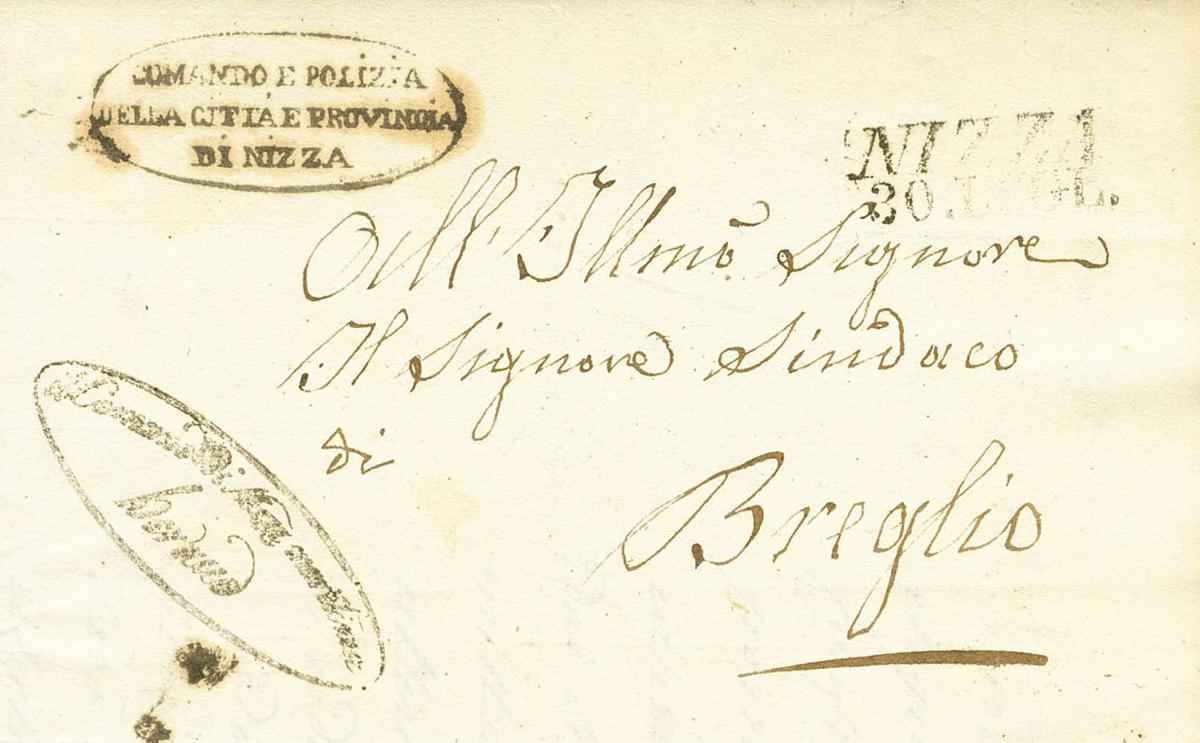 COMANDO E POLIZIA
DELLA CITTÀ E PROVINCIA
DI NIZZA
NIZZA
30. LUGL.
All' Illmo Signore
Il Signore Sindaco
di
Breglio